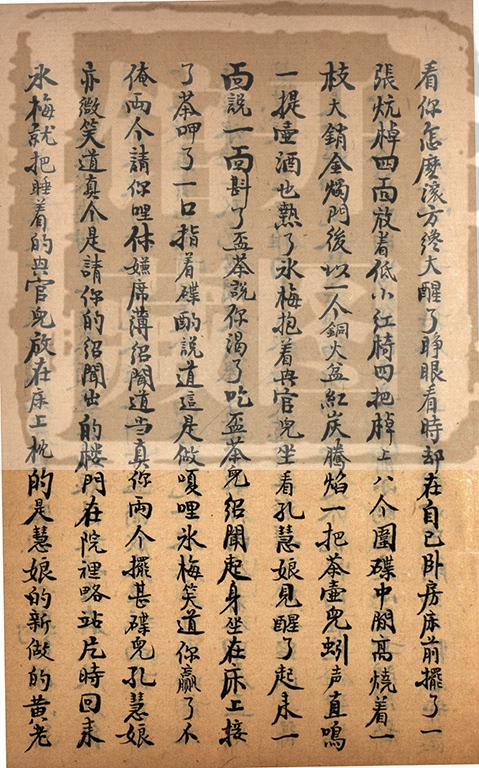 看你怎麽滚方終大醒了睜眼看時却在自己卧房床前擺了一
張炕棹四面放着低小紅椅四把棹上八个圍碟中間高燒着一
枝大銷金燭門後以一个銅火盆紅炭騰焰一把茶壺兒蚓声直鳴
一提壺酒也熱了冰梅抱着兴官兒坐看孔慧娘見醒了起来一
面說一面斟了盃茶說你渴了吃盃茶兒紹聞起身坐在床上接
了茶呷了一口指着碟酌說道這是做嗄哩氷梅笑道你贏了不
俺两个請你哩休嫌席薄紹聞道当真你両个擺甚碟兒孔慧娘
亦微笑道真个是請你的紹聞出的楼門在院裡略站片時回来
氷梅就把睡着的兴官兒放在床上枕的是慧娘的新做的黄老